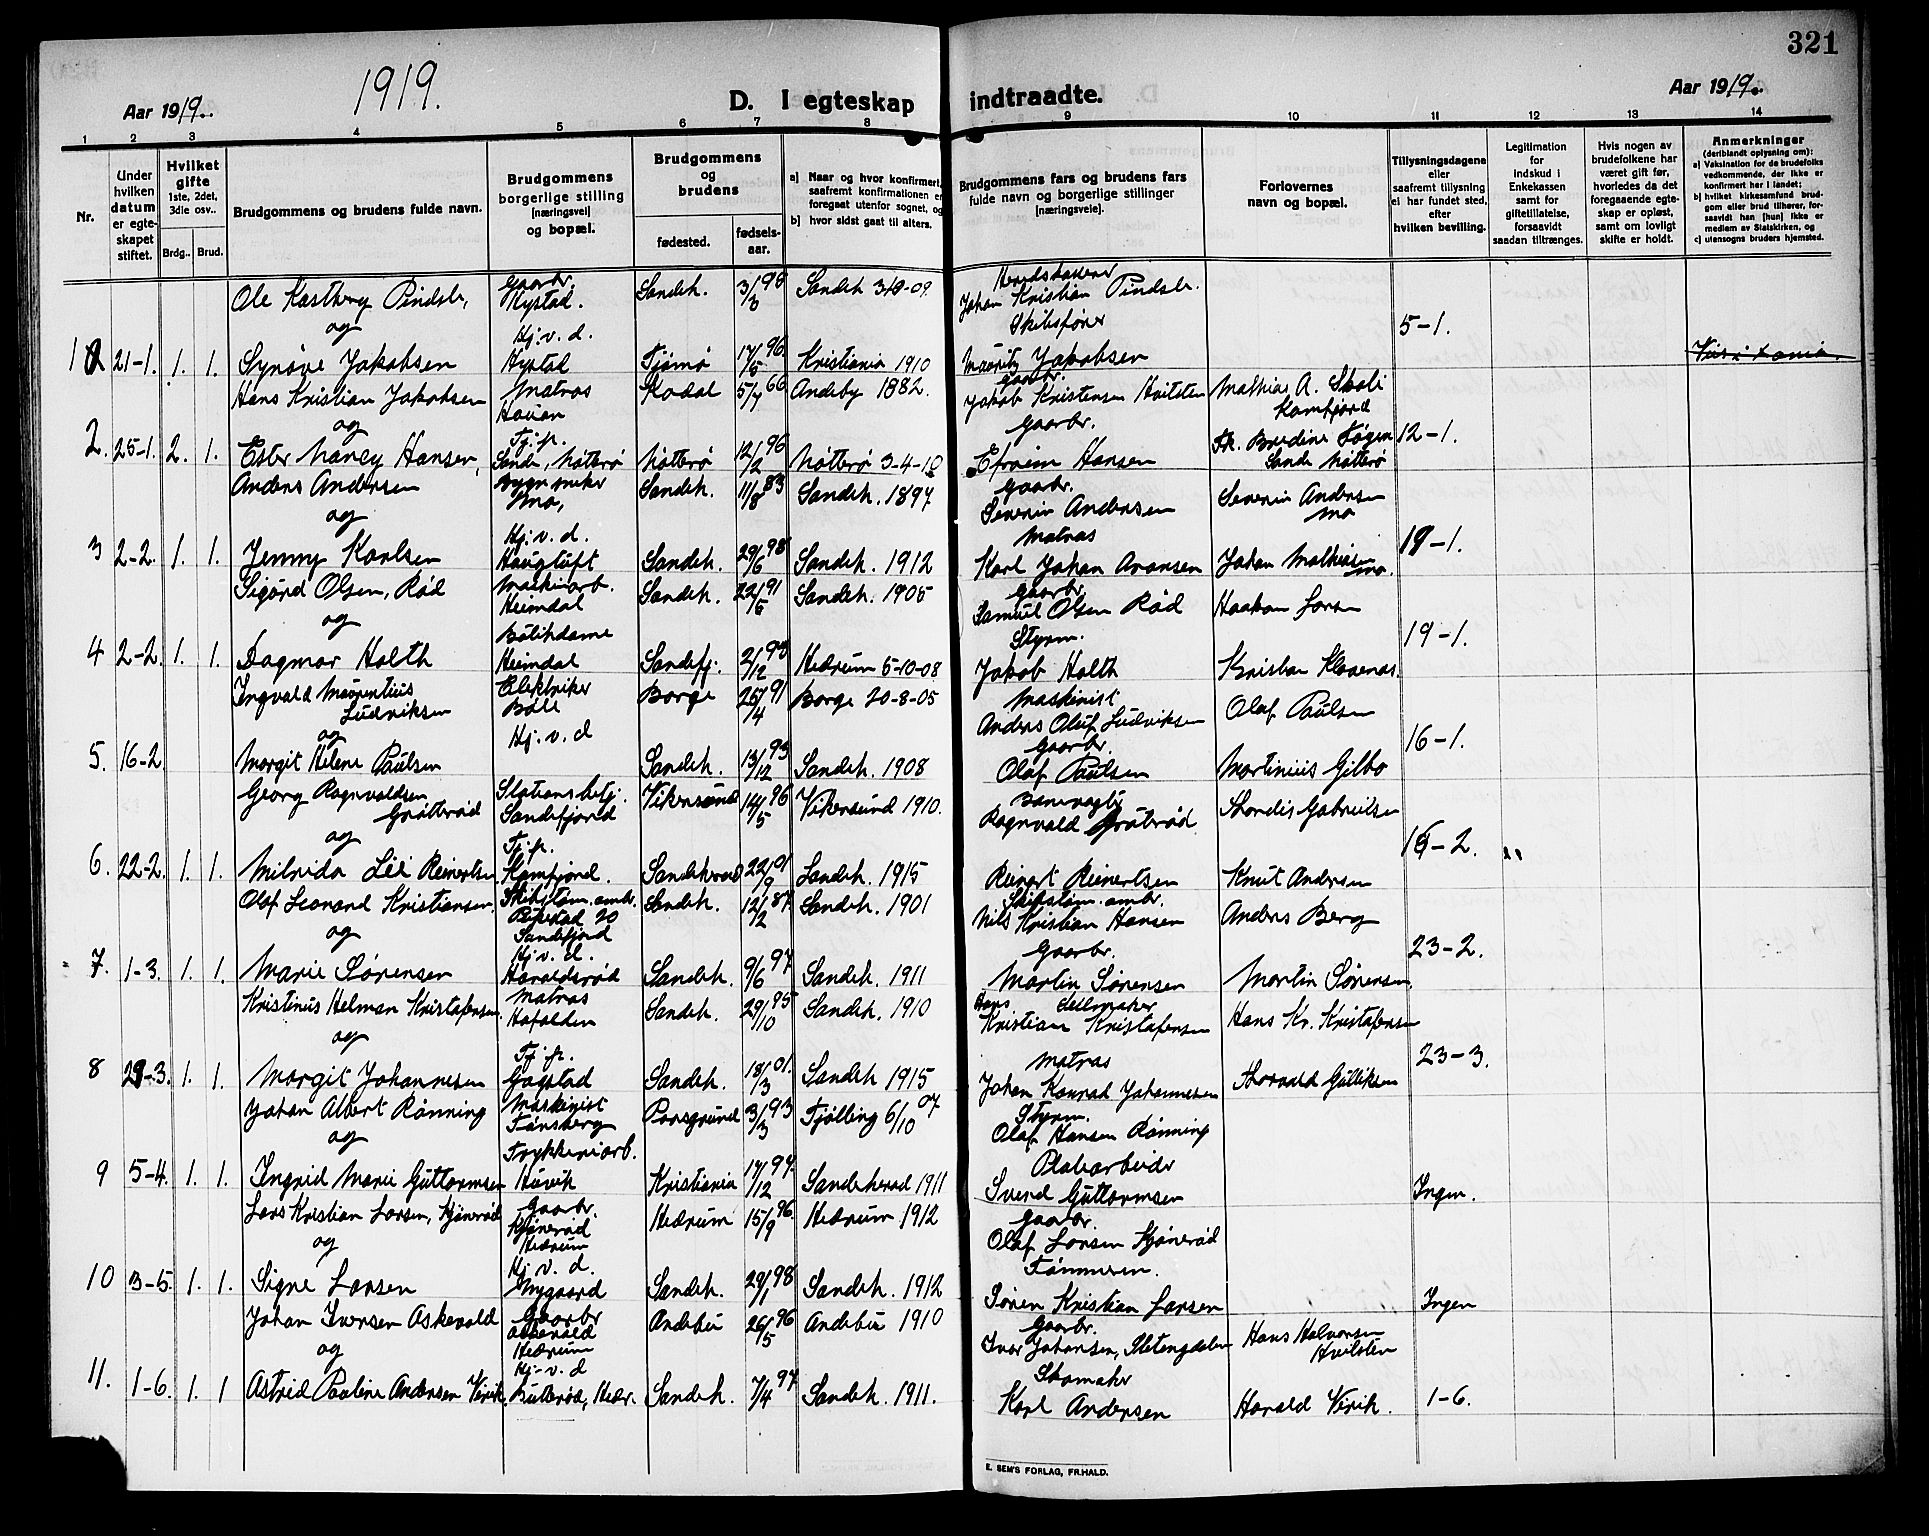 321
1919.
Aar 1919.
D. I egteskap indtraadte.
Aar 1919.
1 2 3 4 5 6 7 8 9 10 11 12 13 14
Nr.
Under hvilken datum er egteskapet stiftet.
Hvilket gifte 1ste, 2det, 3die osv..
Brdg.. Brud.
Brudgommens og brudens fulde navn.
Brudgommens borgerlige stilling [næringsvei] og bopæl.
Brudgommens og brudens
fødested. fødselsaar.
a) Naar og hvor konfirmert, saafremt konfirmationen er foregaat utenfor sognet, og
b) hvor sidst gaat til alters.
Brudgommens fars og brudens fars fulde navn og borgerlige stillinger [næringsveie].
Forlovernes navn og bopæl.
Tillysningsdagene eller saafremt tillysning ei har fundet sted, efter hvilken bevilling.
Legitimation for indskud i Enkekassen samt for giftetillatelse, forsaavidt saadan tiltrænges.
Hvis nogen av brudefolkene har været gift før, hvorledes da det foregaaende egteskap er opløst, samt om lovligt skifte er holdt.
Anmerkninger (deriblandt oplysning om):
a) Vaksination for de brudefolks vedkommende, der ikke er konfirmert her i landet;
b) hvilket kirkesamfund brudgom eller brud tilhører, forsaavidt han [hun] ikke er medlem av Statskirken, og
c) utensogns bruders hjemsted.
Ole Kastberg Pindsle, gaarbr. Nystad. Sandeh. 3/3 95 Sandeh 3-10-09. Herredskasserer Johan Kristian Pindsle.
og
1 21-1. 1. 1. Synøve Jakobsen Hj.v.d. Nystad Tjømø 17/5 96 Kristiania 1910 Skibsfører Mauritz Jakobsen 5-1.
Hans Kristian Jakobsen Matros Haüan Kodal 5/7 66 Andeby 1882. gaarbr. Jakob Kristensen Hvitsten Mathias A. Skoli Kamfjord
og
2. 25-1. 2. 1. Ester Nancy Hansen, Tj.p. Sande, Nøtterø Nøtterø 12/2 96 Nøtterø 3-4-10 Gaarbr. Efraim Hansen Fr. Bredine Føgen Sande Nøtterø 12-1.
Anders Andersen Bygn.sneker Mo, Sandeh. 11/8 83 Sandeh. 1897. gaarbr. Severin Andersen Severin Andersen Mo
og
3 2-2. 1. 1. Jenny Karlsen Hj.v.d. Haugtuft Sandeh. 29/6 98 Sandeh. 1912 Matros Karl Johan Aronsen Johan Mathisen Mo. 19-1.
Sigurd Olsen, Rød Maskinarb. Heimdal Sandeh. 22/5 91 Sandeh. 1905 gaarbr. Samuel Olsen Rød Haakon Larsen
og
4 2-2. 1. 1. Dagmar Holth Bütikdame Heimdal Sandefj. 2/12 93 Hedrum 5-10-08 Styrm. Jakob Holth Kristian Klavenes. 19-1.
Ingvald Maurentius Ludviksen Elektriker Bøle Borge 25/4 91 Borge 20-8-05 Maskinist Anders Oluf Ludviksen Olaf Paulsen
og
5. 16-2. Margit Helene Paulsen Hj.v.d Sandeh. 13/12 93 Sandeh. 1908 Gaarbr. Olaf Paulsen Martinius Gilbo 16-1.
Georg Ragnvaldsen Grøtterød Stationsbetj. Sandefjord Vikersund 14/5 96 Vikersund 1910. Banevogter Ragnvald Grøtrød Skondis Gabrielsen
og
6. 22-2. 1. 1. Milrida Lii Reinertsen Tj.p. Kamfjord. Sandeherad 22/9 01 Sandeh. 1915 Reinert Reinertsen Knut Andersen 16-2.
Olaf Leonard Kristiansen Skibstøm. Sandefjord Sandeh. 12/2 87. Sandeh. 1901 Skibstøm. Nils Kristian Hansen Anders Berg
og
7. 1-3. 1. 1. Marie Sørensen Hj.v.d. Haraldsrød Sandeh. 9/6 97 Sandeh. 1911 Gaarbr. Martin Sørensen Martin Sørensen 23-2.
Kristinus Helman Kristofersen. Matros Hafallen Sandeh. 29/10 95 Sandeh. 1910 Seilmaker Hans Kristian Kristofersen Hans Kr. Kristofersen
og
8 29-3. 1. 1. Margit Johannesen Tj.p. Gogstad Sandeh. 18/3 01. Sandeh 1915 Matros Johan Konrad Johannesen Thorvald Gulliksen 23-3.
Johan Albert Rønning Maskinist Tønsberg Porsgrund 3/3 93 Tjølling 6/10 07 Styrm. Olaf Hansen Rønning
og
9 5-4. 1. 1. Ingrid Marie Güttormsen Trykkeriarb. Huvik Kristiania 17/12 97. Sandeherad 1911 Platearbeider Svend Güttormsen Ingen.
Lars Kristian Larsen, Kjønerød Gaarbr. Kjønerød Hedrum Hedrum 15/9 96. Hedrum 1912 gaarbr. Olaf Larsen Kjønerød
og
10 3-5. 1. 1. Signe Larsen Hj.v.d. Nygaard Sandeh. 29/1 98 Sandeh. 1912 Tømmerm. Søren Kristian Larsen Ingen
Johan Iversen Askevold Gaarbr Askevald Hedrum Andebü 26/5 96 Andebü 1910 gaarbr. Ivar Johansen, Sletengdalen Hans Halvorsen Hvitsten
og
11. 1-6. 1. 1 Astrid Pauline Andersen Virik. Hj.v.d Butterød, Hedr. Sandeh. 7/4 97 Sandeh. 1911. Skomaker Karl Andersen Harald Virik. 1-6.
E. SEM'S FORLAG, FR.HALD.